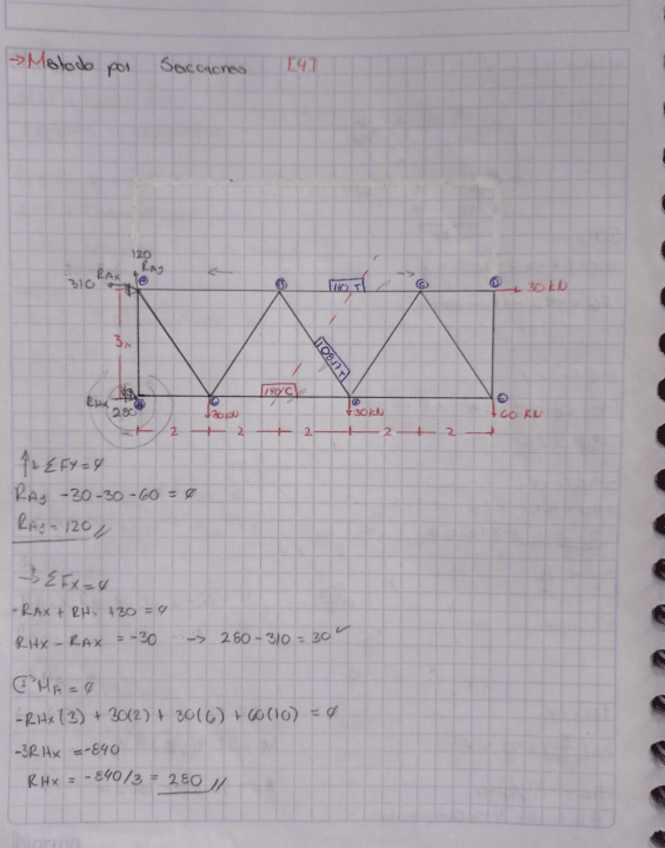 →Metodo por Secciones [4]
120
RAy
310 RAx
110 T
30 kN
3m
108.17 T
140 C
RHx
280
30kN
30kN
60 KN
2 2 2 2 2
↑+ΣFY=0
RAy -30-30-60 = 0
RAy = 120 //
→ΣFx=0
-RAX + RHx +30 = 0
RHX - RAX = -30 → 280-310 = 30 ✓
MA = 0
-RHx(3) + 30(2) + 30(6) + 60(10) = 0
-3RHx = -840
RHx = -840/3 = 280 //
Norma